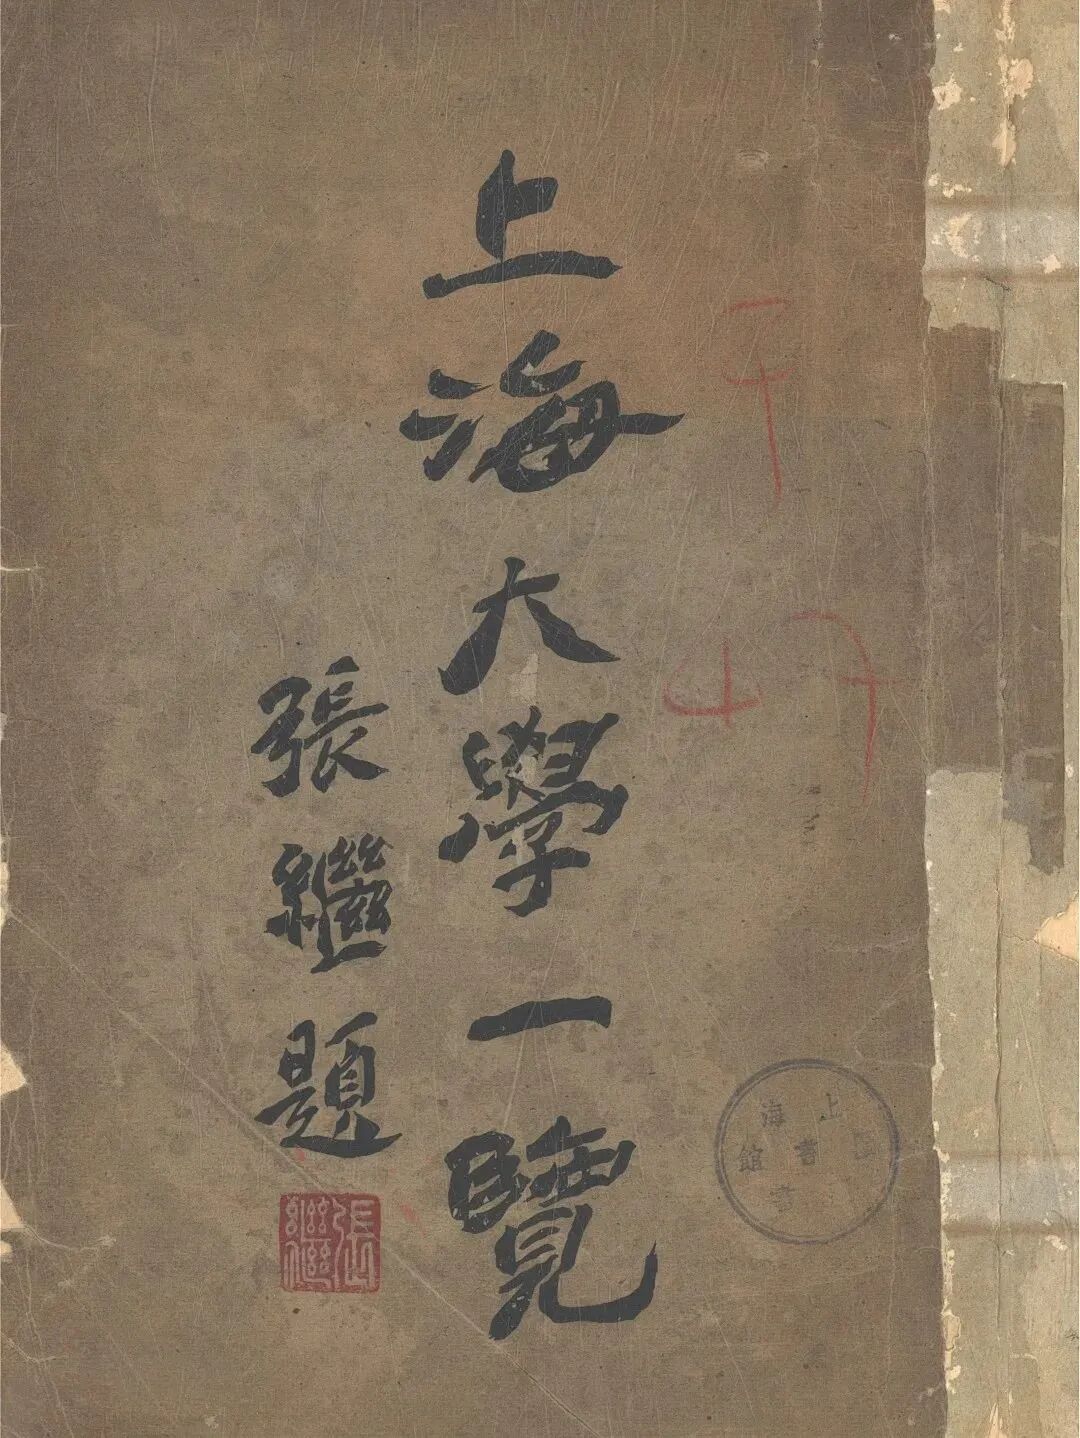 上海大學一覽
張繼題
張繼
上海
書館